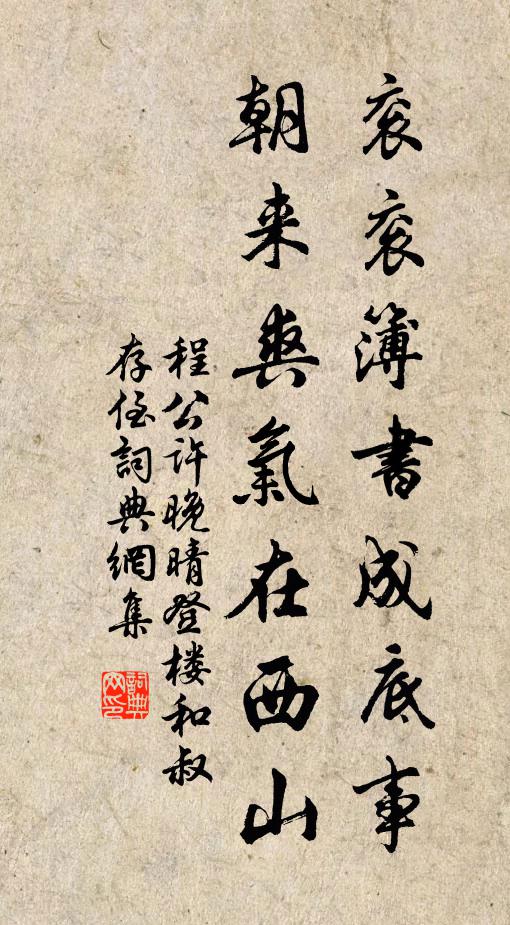 衮衮簿书成底事
朝来爽氣在西山
程公许晚晴登楼和叔
存侄詞典網集
詞典網印